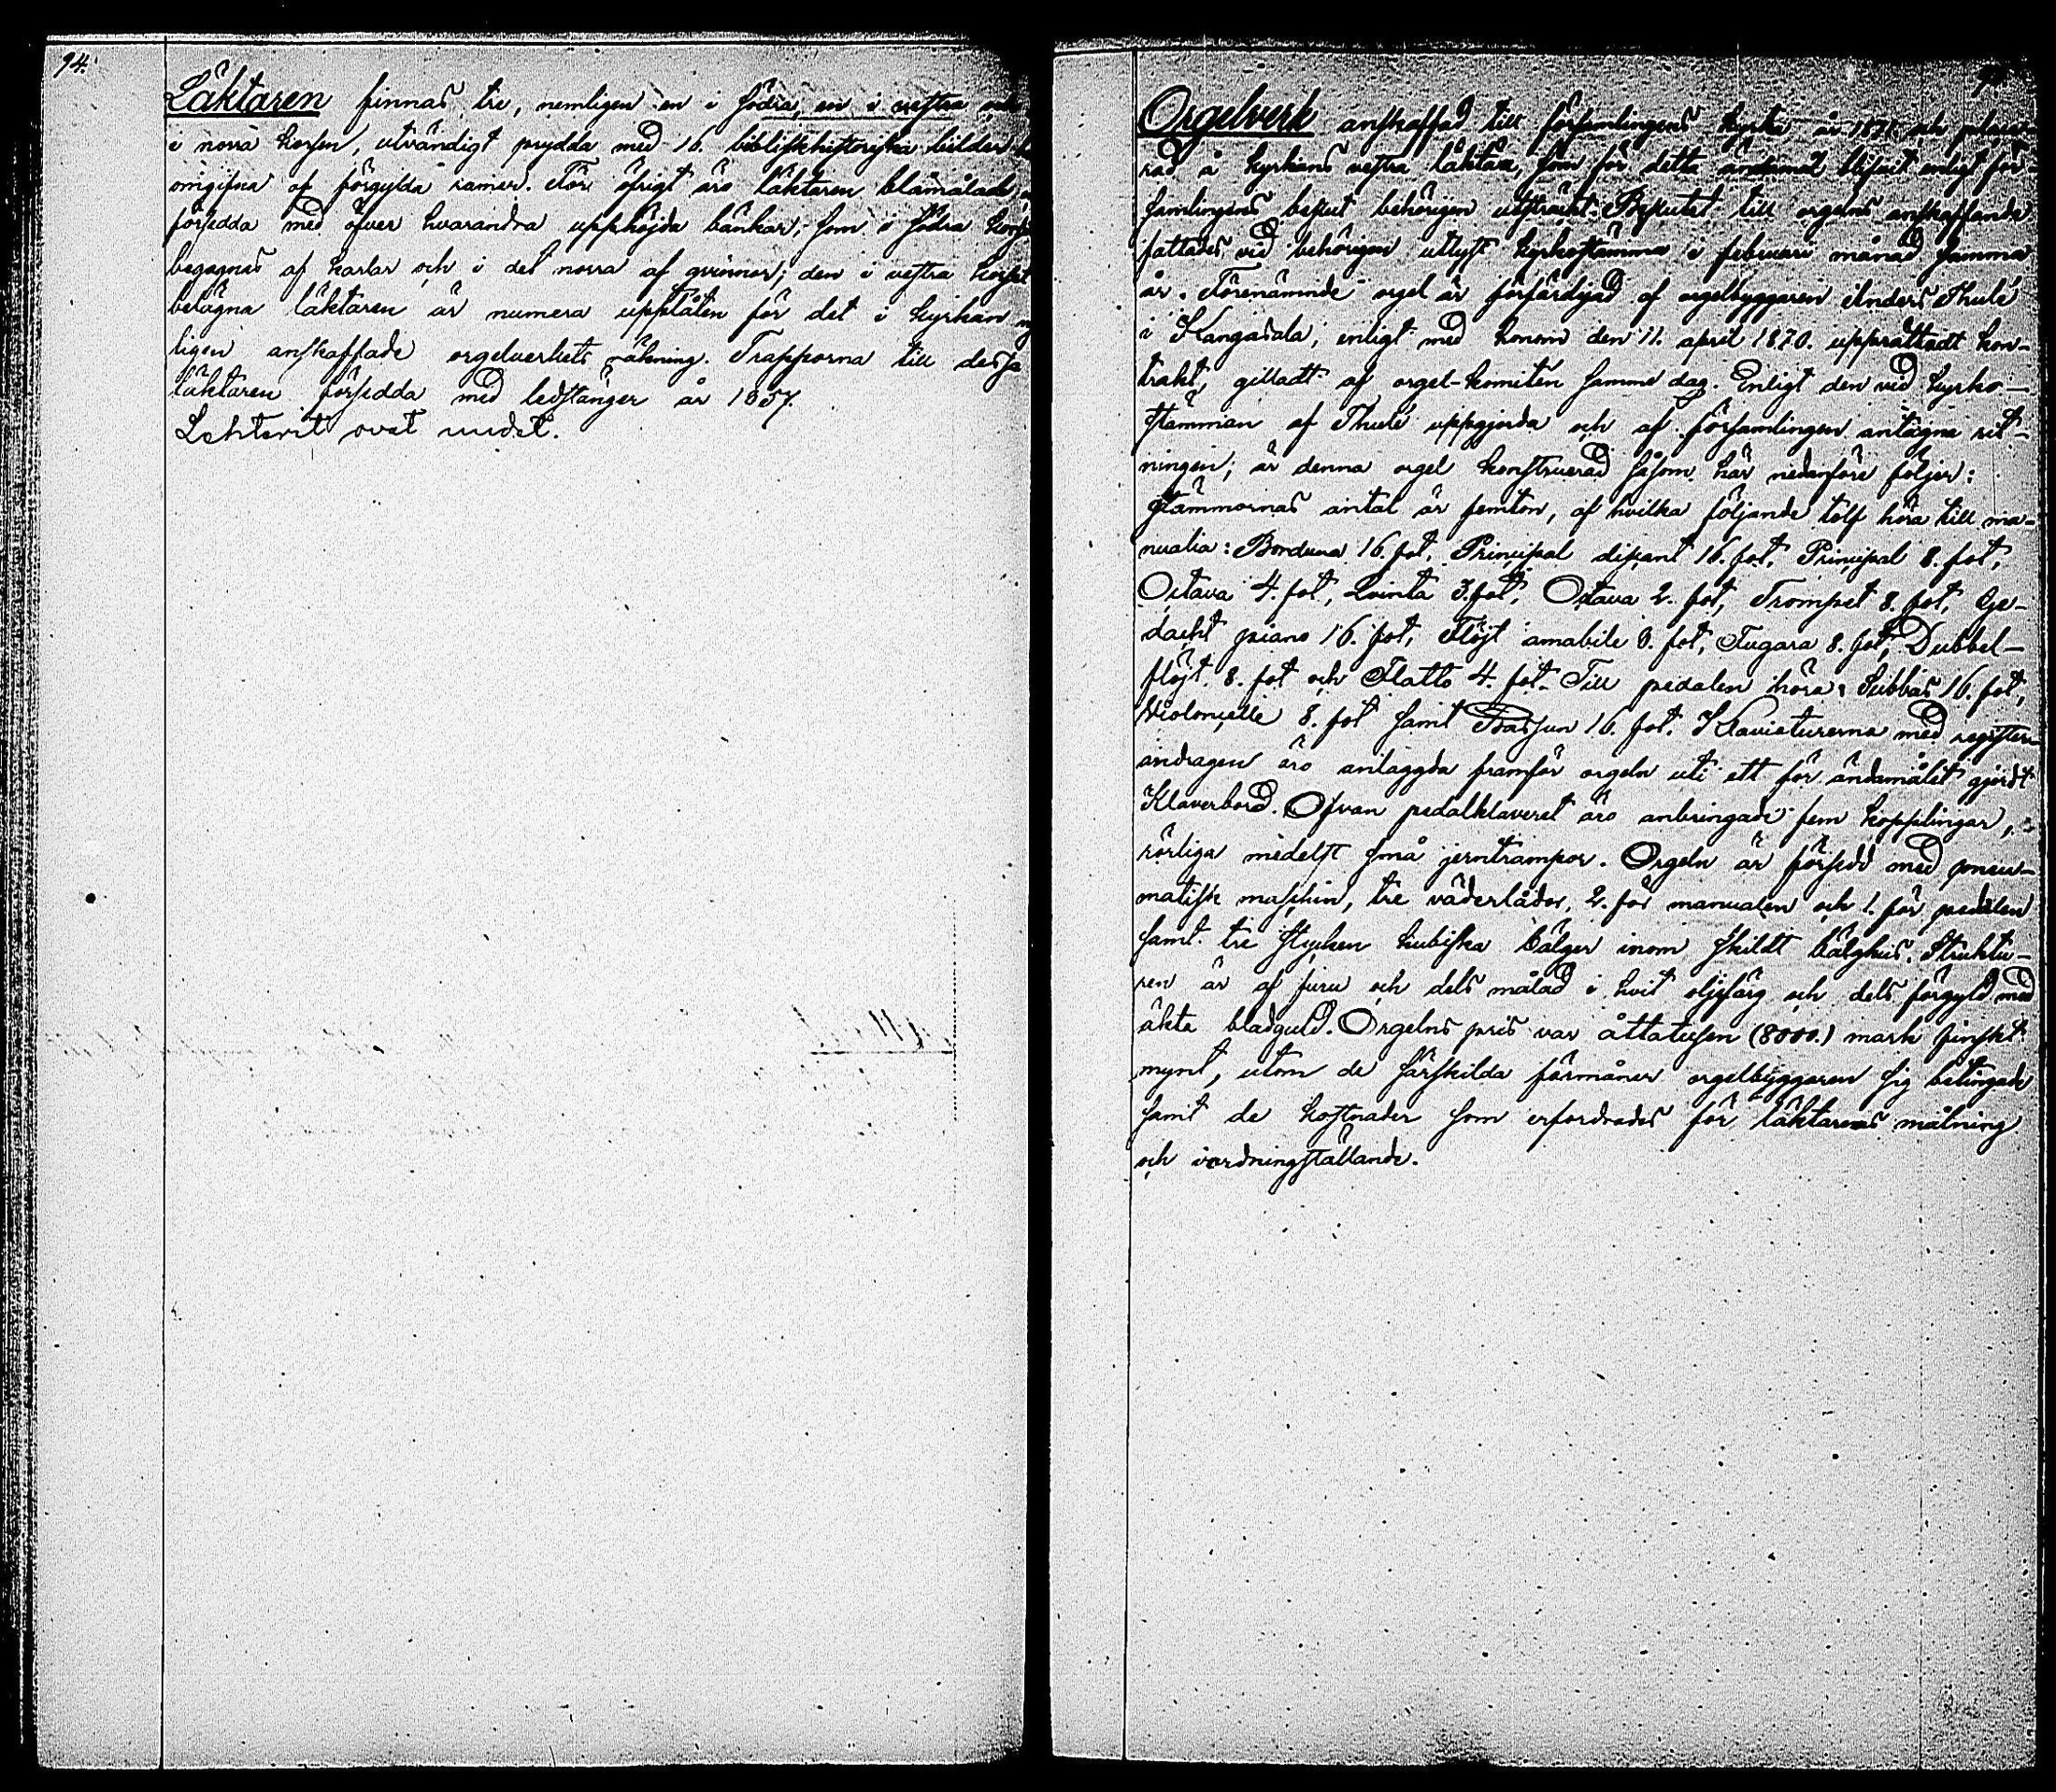 94.
Läktaren finnas tre, nemligen en i södra, en i vestra och
i norra korsen, utvändigt prydda med 16. bibliskhistoriska bilder
omgifna af förgylda ramer. För öfrigt äro läktaren blåmålade
försedda med öfver hvarandra upphöjda bänkar, som i södra korset
begagnas af karlar och i det norra af qvinnor; den i vestra korset
belägna läktaren är numera upplåten för det i kyrkan ny
ligen anskaffade orgelverkets räkning. Trapporna till dessa
läktaren försedda med ledstänger år 1857.
Lehterit ovat uudet.
Orgelverk anskaffad till församlingens kyrka år 1871 och place-
rad å kyrkans vestra läktare, som för detta ändamål blifvit enligt för-
samlingens beslut behörigen utsträckt. Beslutet till orgelns anskaffande
fattades vid behörigen utlyst kyrkostämma i februari månad samma
år. Förenämnde orgel är förfärdigad af orgelbyggaren Anders Thulé
i Kangasala, enligt med honom den 11. april 1870. upprättadt kon-
trakt, gilladt af orgel-komitén samma dag. Enligt den vid kyrko-
stämman af Thulé uppgjorda och af församlingen antagna rit-
ningen, är denna orgel konstruerad såsom här nedanföre följer:
Stämmornas antal är femton, af hvilka följande tolf höra till ma-
nualia: Borduna 16. fot, Principal diskant 16. fot, Principal 8. fot,
Octava 4. fot, Qvinta 3. fot, Octava 2. fot, Trompet 8. fot, Ge-
dacht piano 16. fot, Flöjt amabile 8. fot, Fugara 8. fot, Dubbel-
flöjt 8. fot och Flatto 4. fot. Till pedalen höra: Subbas 16. fot,
Violoncelle 8. fot samt Bassun 16. fot. Klaviaturerna med register-
andragen äro anlaggda framför orgeln uti ett för ändamålet gjordt
Klaverbord. Ofvan pedalklaveret äro anbringade fem kopplingar,
rörliga medelst små jerntrampor. Orgeln är försedd med pneu-
matisk maschin, tre väderlådor, 2. för manualen och 1. för pedalen
samt tre stycken kubiska bälger inom skildt bälghus. Struktu-
ren är af furu och dels målad i hvit oljefärg och dels förgyld med
äkta bladguld. Orgelns pris var åttatusen (8000.) mark finskt
mynt, utom de särskilda förmåner orgelbyggaren sig betingade
samt de kostnader som erfordrades för läktarens målning
och iordningställande.